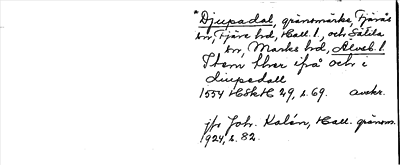 *Djupadal, gränsmärke, Fjärås
sn, Fjäre hd, Hall. l, och Sätila
sn, Marks hd, Älvsb. l.
Item ther ifrå och i
diupedall
1554 HSkH 29, s. 69. avskr.
jfr Joh. Kalén, Hall. gränsm.
1924, s. 82.